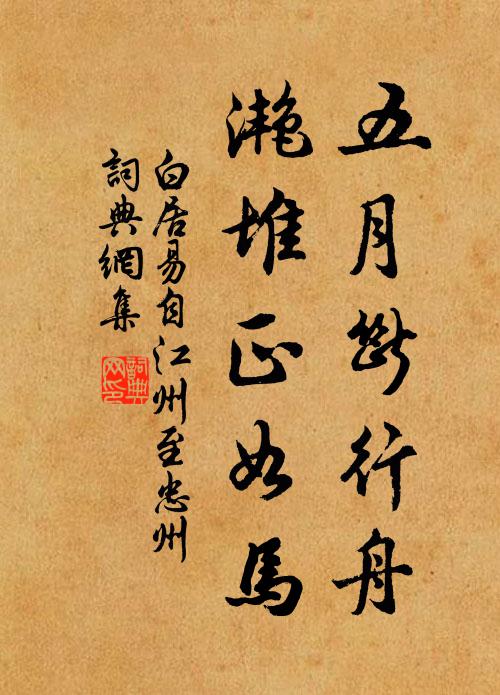 五月斷行舟
灔堆正如馬
白居易自江州至忠州
詞典網集
詞典網印